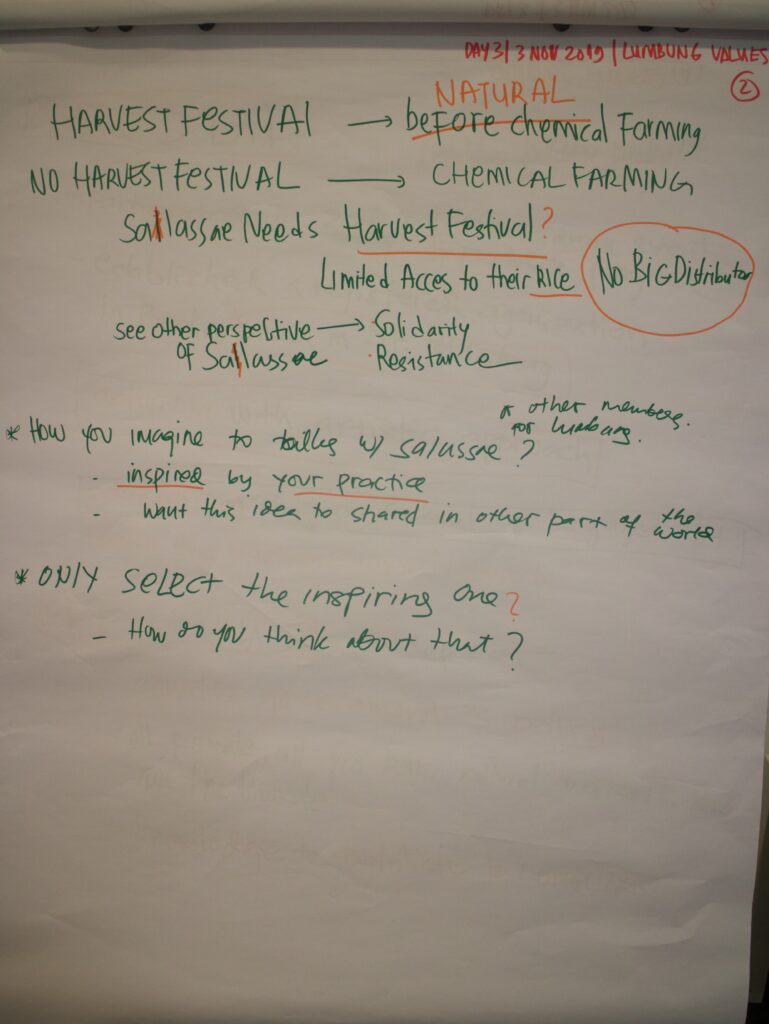 DAY3 | 3 NOV 2019 | LUMBUNG VALUES
2
NATURAL
HARVEST FESTIVAL → before chemical Farming
NO HARVEST FESTIVAL → CHEMICAL FARMING
Sallassae Needs Harvest Festival?
Limited Acces to their RICE
No BIG Distributor
see other perspektive → Solidarity
OF Sallassae Resistance
or other members.
for lumbung.
* HOW you imagine to talks w/ salassae?
- inspired by your practice
- want this idea to shared in other part of the world
* ONLY select the inspiring one?
- How do you think about that?